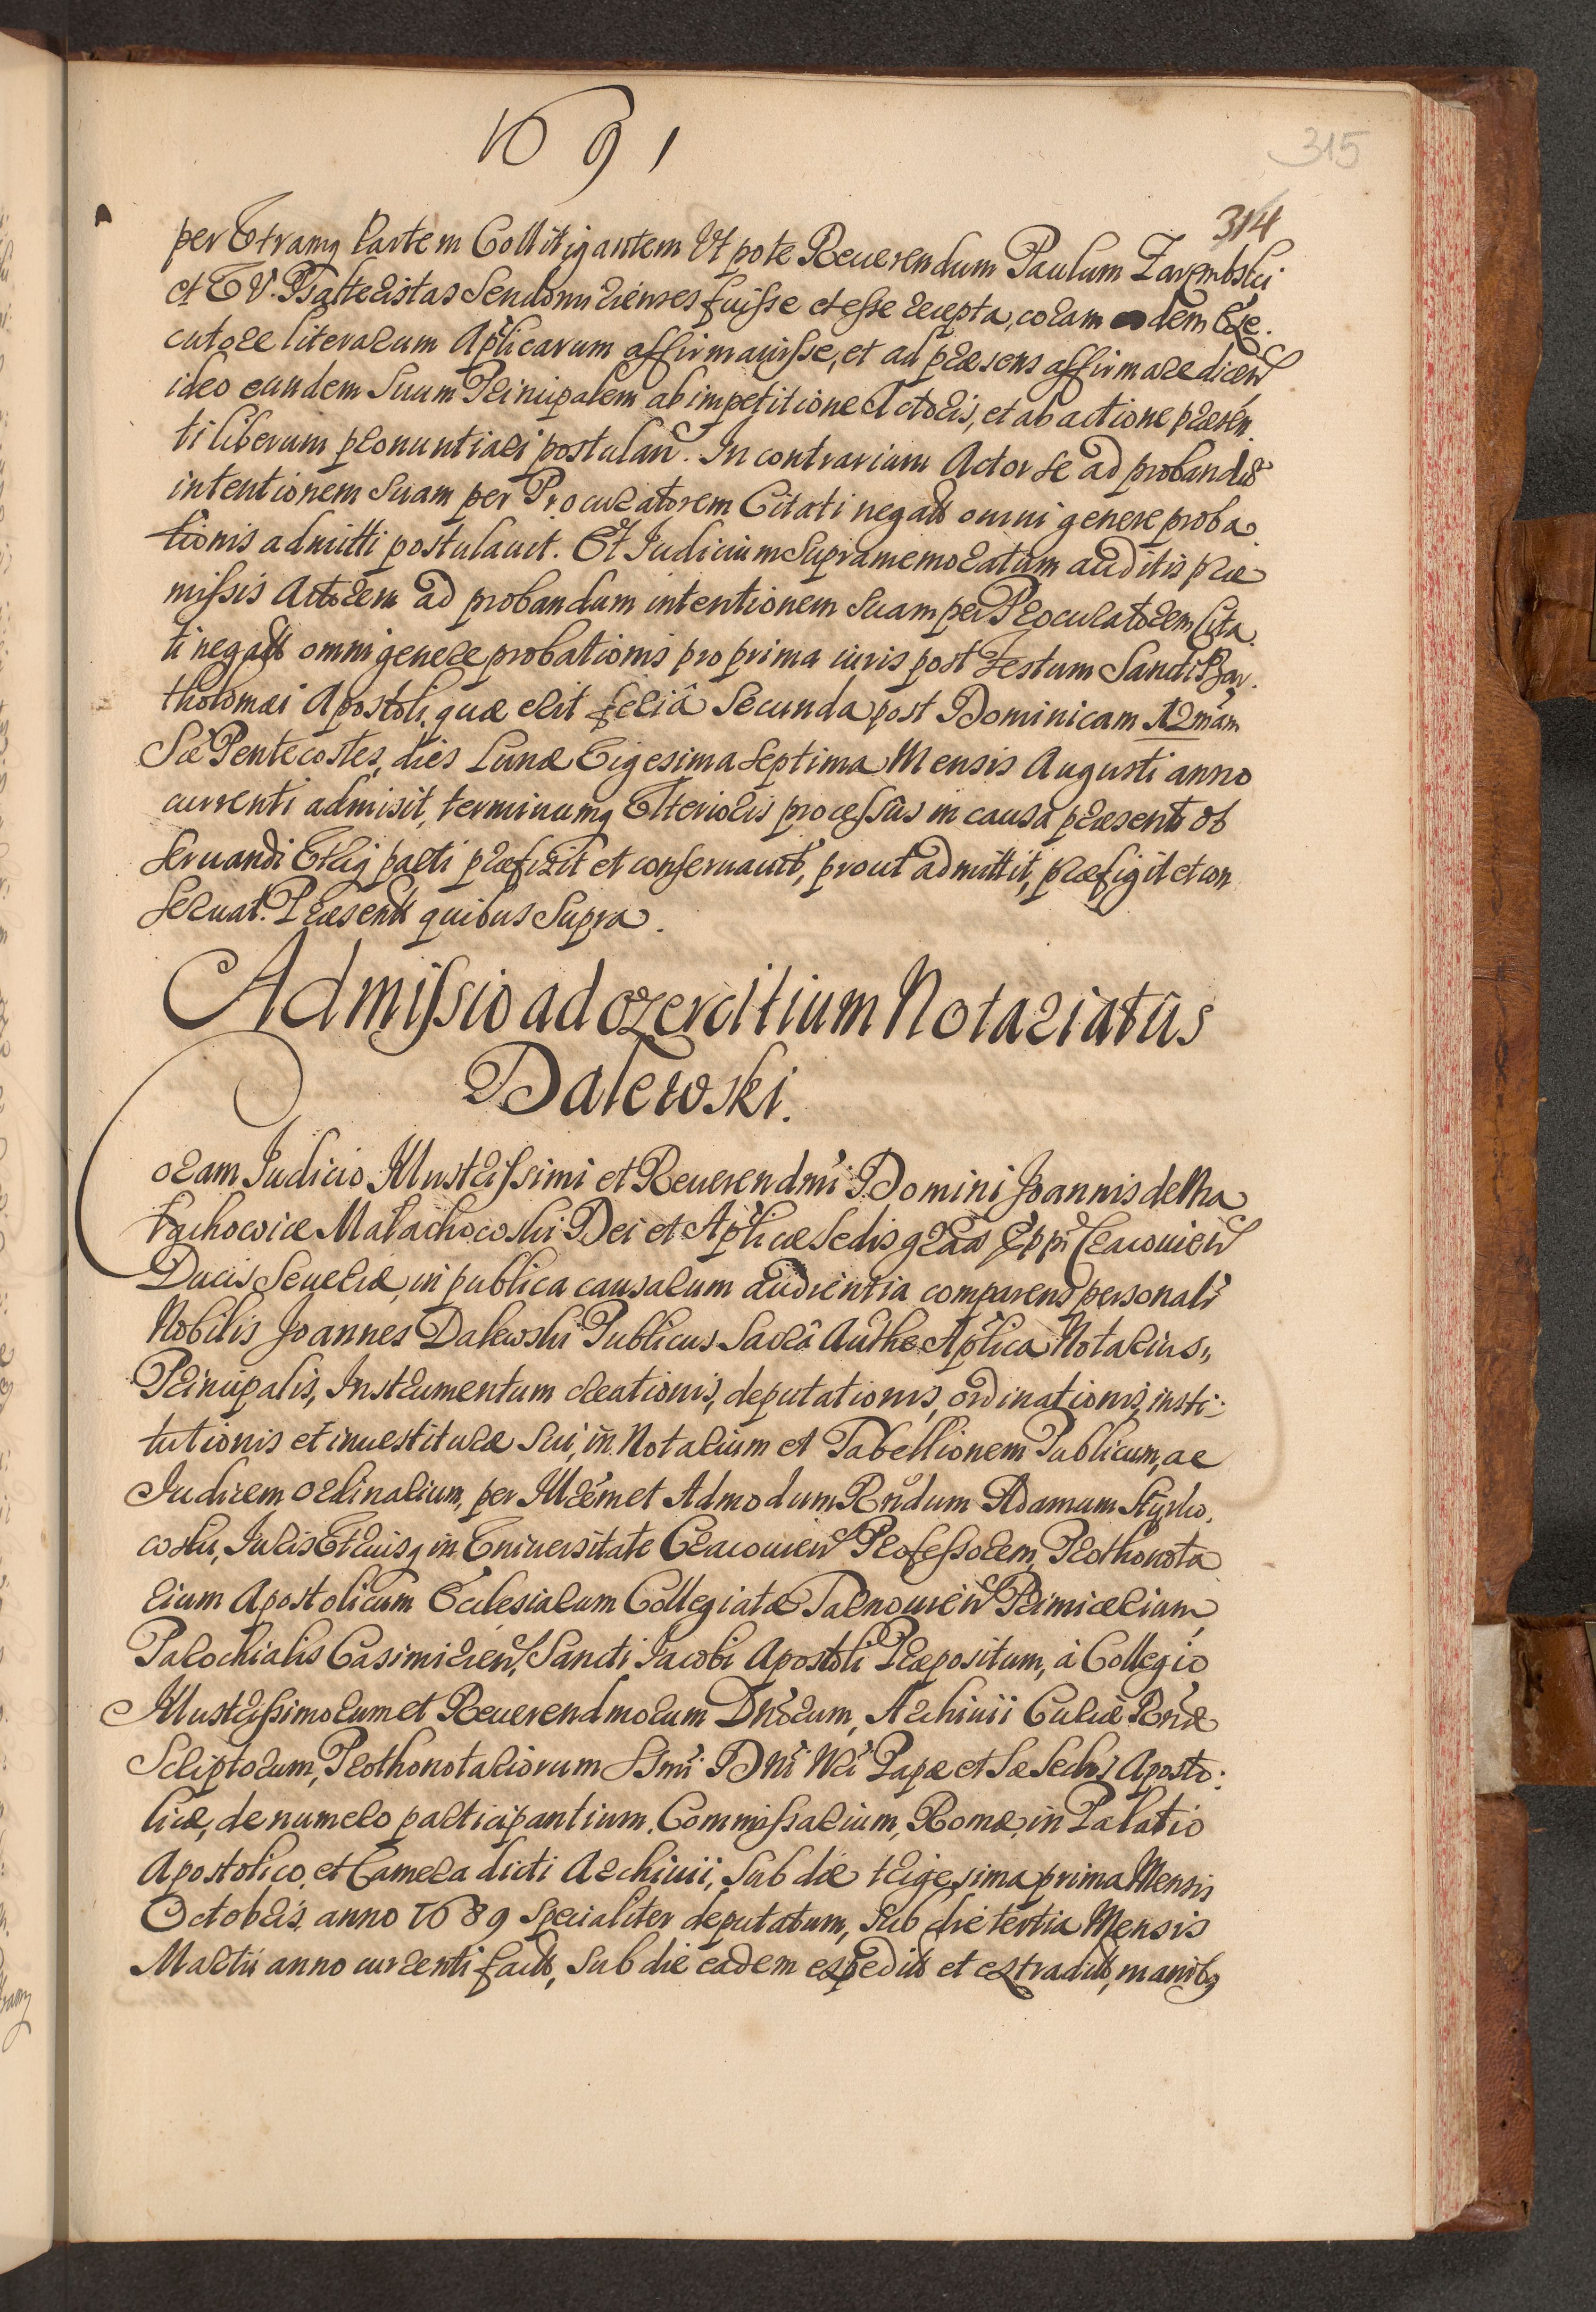 1691
315
314
per Utramq Partem Collitigantem Ut pote Reuerendum Paulum Zarembski
et V.V. Psalteristas Sendomirienses fuisse et esse recepta, coram eodem Exe.
cutore literarum Aplicarum affirmauisse, et ad præsens affirmare dicen
ideo eundem suum Principalem ab impetitione Actoris, et ab actione præsen.
ti liberum pronuntiari postulan. In contrarium Actor se ad probandu
intentionem suam per Procuratorem Citati negatt omni genere proba.
tionis admitti postulauit. Et Iudicium Supramemoratum auditis præ
missis Actorem ad probandum intentionem suam per Procuratorem Cita.
ti negatt omni genere probationis pro prima iuris post Festum Sancti Bar.
tholomæi Apostoli, quæ erit feriâ Secunda post Dominicam 12mam
Sæ Pentecostes, dies Lunæ Vigesima septima Mensis Augusti anno
currenti admisit, terminumq Ulterioris processûs in causa præsenti ob
seruandi Utriq parti præfixit et conseruauit, prout admittit, præfigit et con
seruat. Præsentt quibus Supra.
Admissio ad exercitium Notariatûs
Dalewski.
Coram Iudicio Illustrissimi et Reuerendmi D. Domini Joannis de Ma
łachowice Małachowski Dei et Aplicæ Sedis graa Eppi Cracouien
Ducis Seueriæ, in publica causarum audientia comparens personalr
Nobilis Joannes Dalewski Publicus Sacrâ Authe Aplica Notarius,
Principalis, Instrumentum creationis, deputationis, ordinationis, insti:
tutionis et inuestituræ sui, in Notarium et Tabellionem Publicum, ac
Iudicem ordinarium, per Illrem et Admodum Rndum Adamum Styrko.
wski, Iuris Utriusq in Vniuersitate Cracouien Professorem, Prothonota
rium Apostolicum Ecclesiarum Collegiatæ Tarnouien Primicerium,
Parochialis Casimirien, Sancti Jacobi Apostoli Præpositum, à Collegio
Illustrissimorum et Reuerendmorum Dnorum, Archiuii Curiæ Rnæ
Scriptorum, Prothonotariorum SSmi D Ni Nri Papæ et Sæ Sedis Aposto:
licæ, de numero participantium, Commissarium, Romæ, in Palatio
Apostolico, et Camera dicti Archiuii, sub die trigesima prima Mensis
Octobris, anno 1689 specialiter deputatum, sub die tertia Mensis
Martii anno currenti factt, sub die eadem expeditt et extraditt, manibq